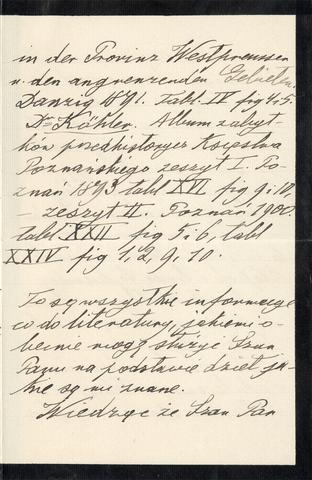 in der Provinz Westpreussen
u. den angrenzenden Gebieten.
Danzig 1871. tabl. IV fig 4 i 5.
Dr Köhler. Album zabyt-
ków przedhistorycz Księstwa
Poznańskiego zeszyt I. Po-
znań 1893 tabl XVI fig 9 i 10
– zeszyt II. Poznań 1900.
tabl XXII fig 5 i 6, tabl
XXIV fig 1, 2, 9 i 10.
To są wszystkie informacye
co do literatury, jakiemi o-
becnie mogę służyć Szan
Panu na podstawie dzieł ja-
kie są mi znane.
Wiedząc że Szan Pan